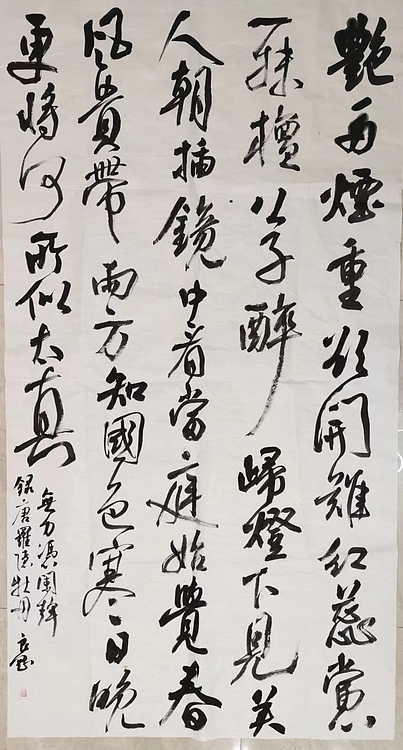 艷多煙重欲開難紅蕊當心
一抹檀公子醉歸燈下見美
人朝插鏡中看當庭始覺春
風貴帶雨方知國色寒日晚
更將何所似太真
無力憑闌榦
錄唐羅隱牡丹